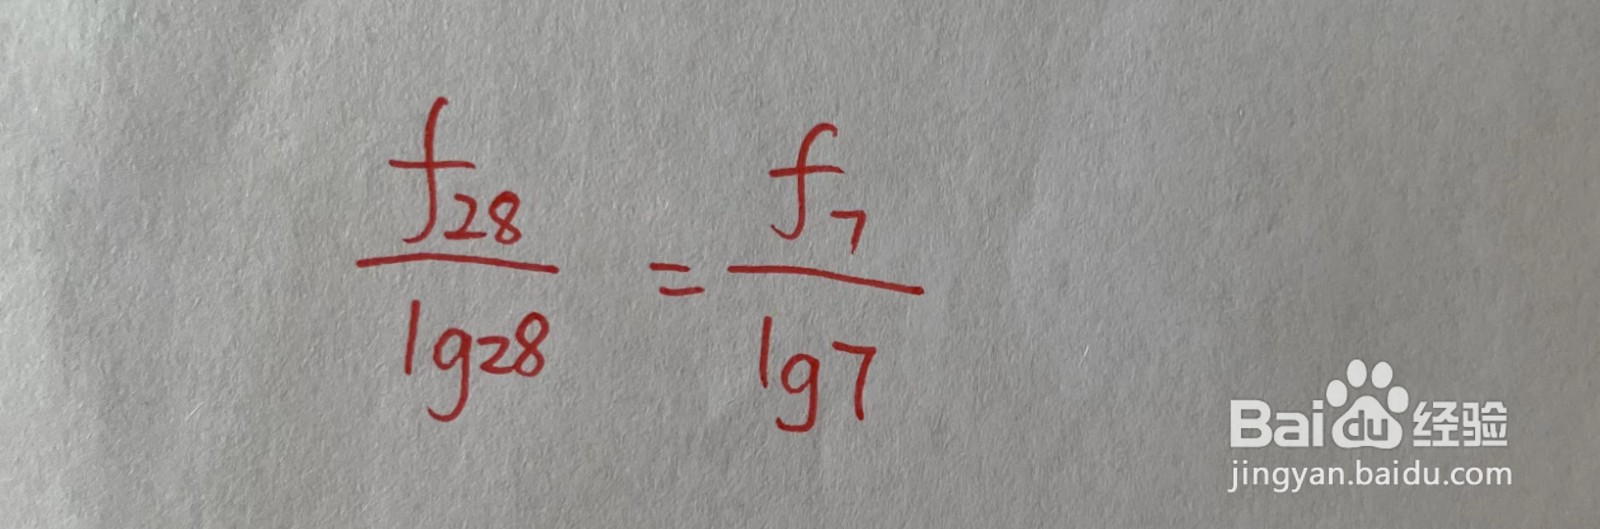 f₂₈ / lg28 = f₇ / lg7
Baidu 经验
jingyan.baidu.com